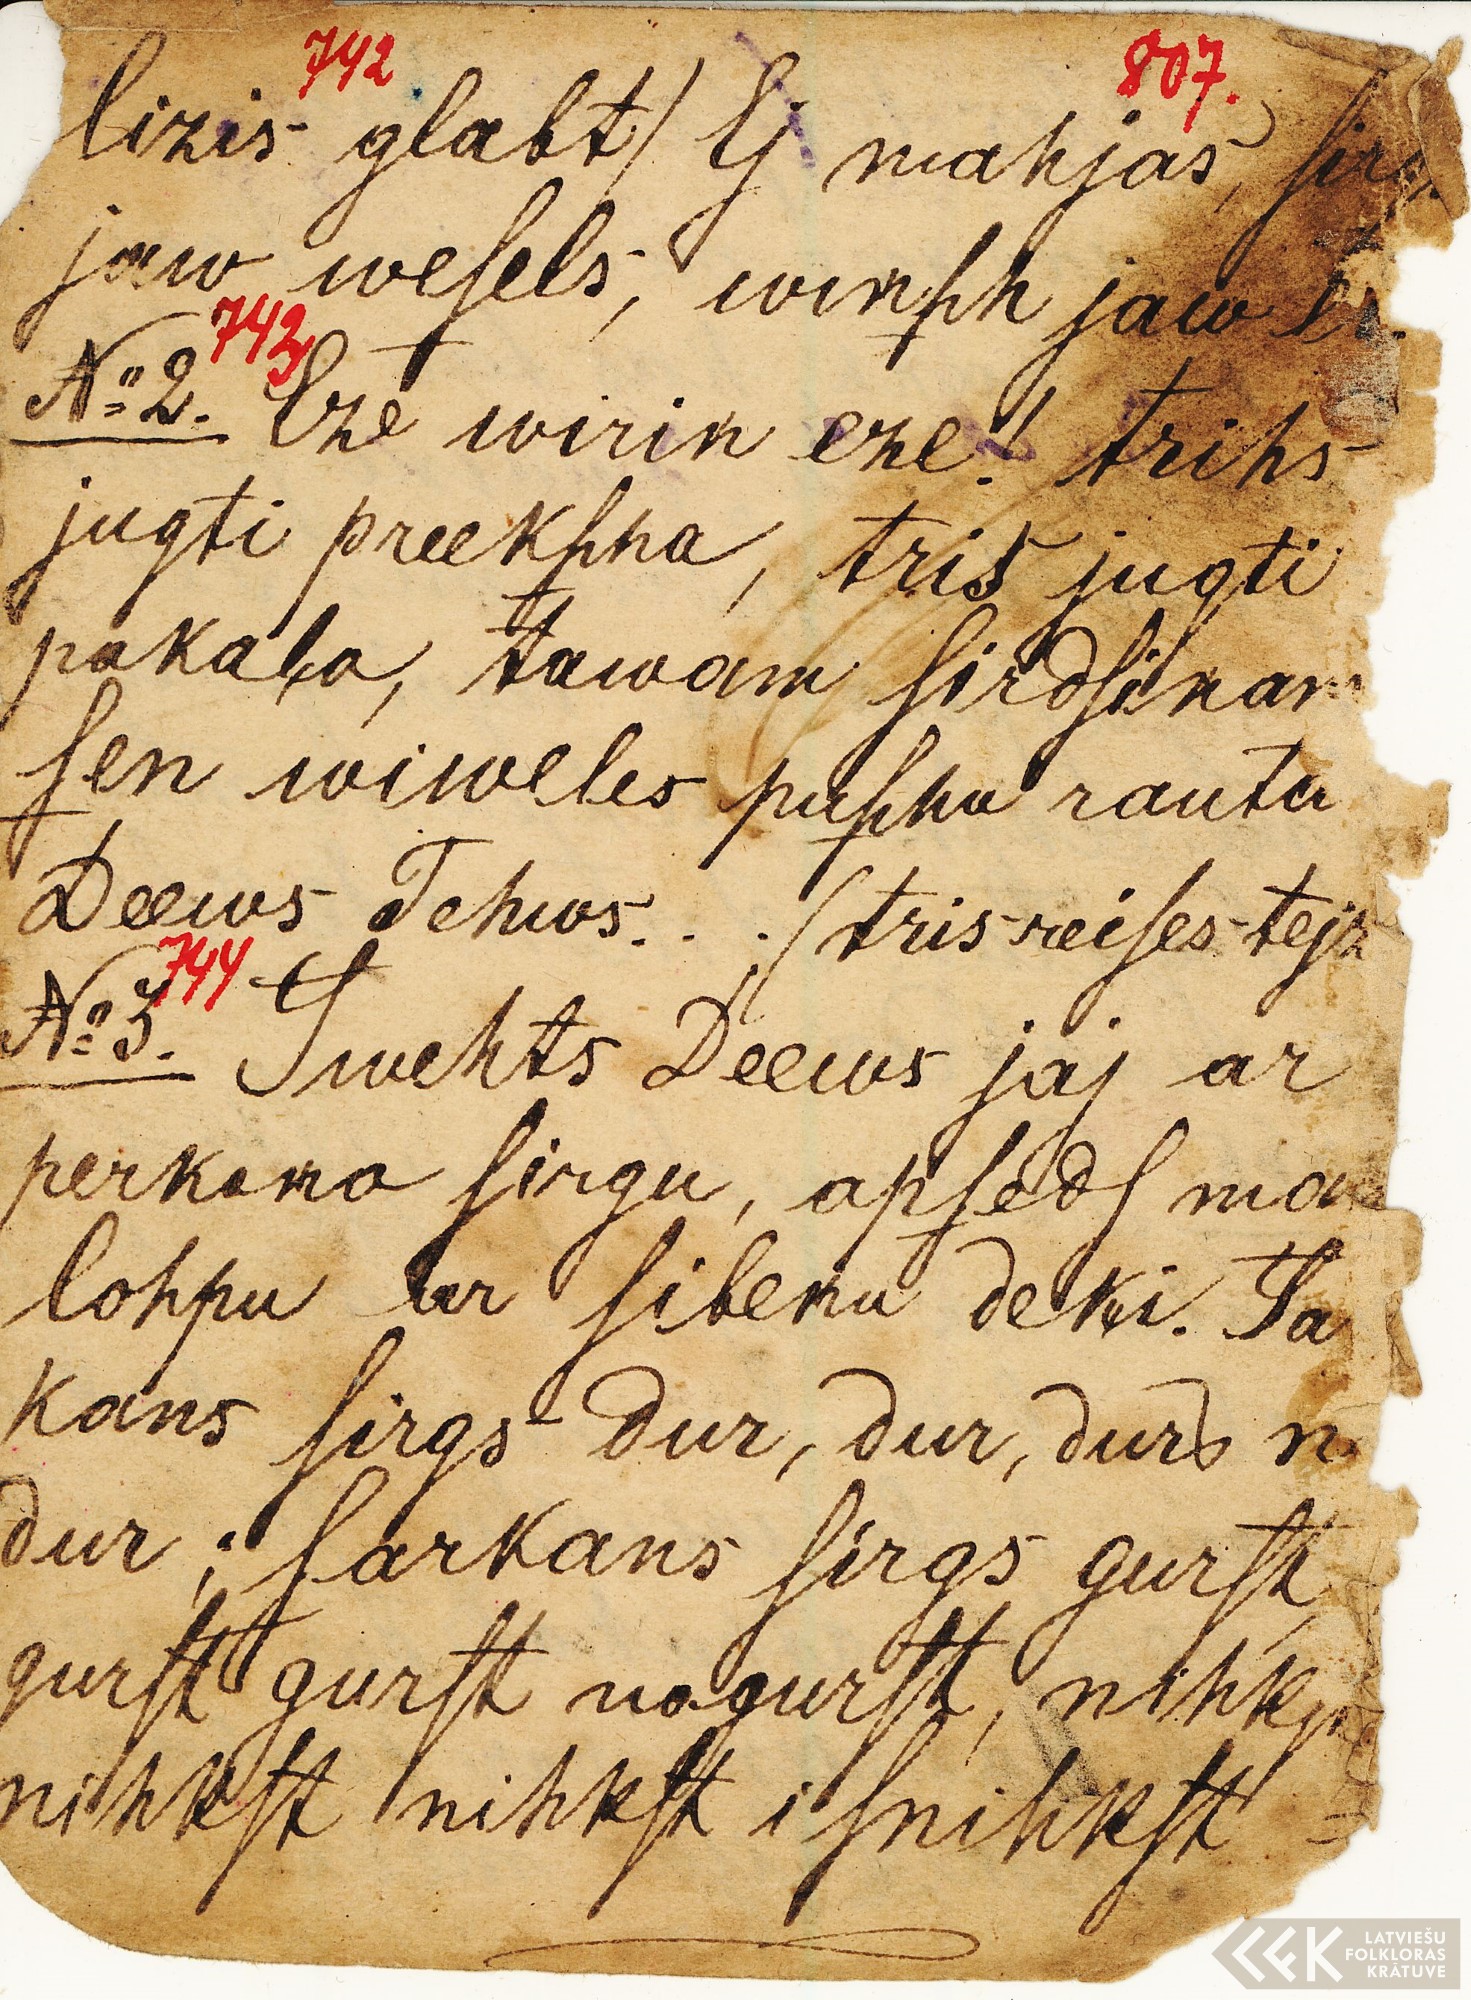 742 807.
lizis glabt) Ej mahjas,
jaw weſels, winſch jaw
743
№ 2. Eze wirin eze! trihs
jugti preekſcha, tris jugti
pakala, tawam ſirdſinam
ſen wiweles puſchu rauta
Deews Tehws. . . (tris reiſes tej
744
№ 3. Swehts Deews jaj ar
perkona ſirgu, apſedſ man
lohpu ar ſibenu deki. Sa
kans ſirgs dur, dur, durs
dur; ſarkans ſirgs gurſt,
gurſt gurſt nogurſt, nihkſt
nihkſt nihkſt iſnihkſt
LATVIEŠU
FOLKLORAS
KRĀTUVE